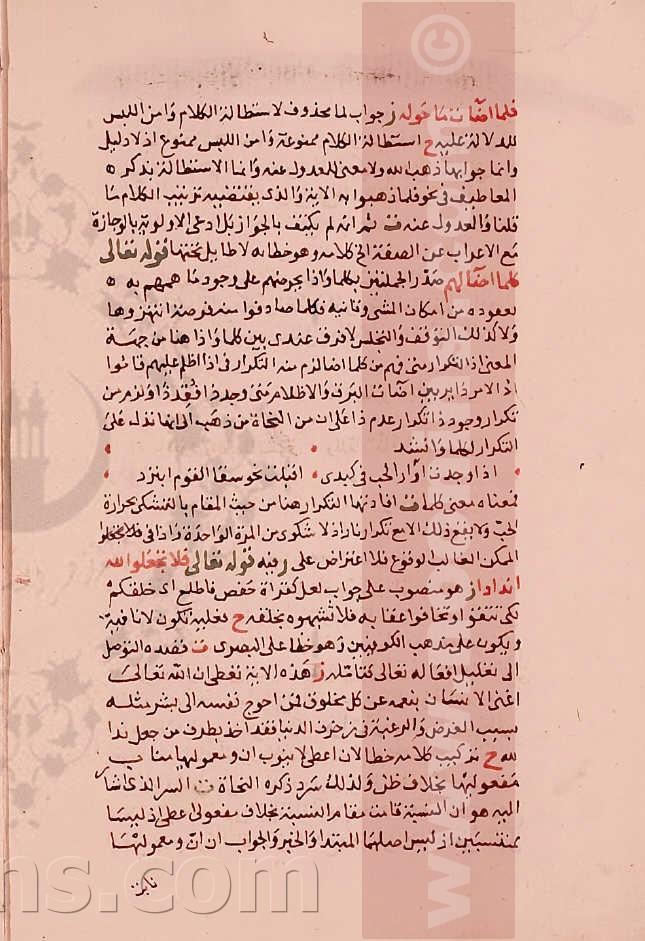 فلما اضات ما حوله ز جواب لما محذوف لاستطالة الكلام وامن اللبس
للدلالة عليه ح استطالة الكلام ممنوعة وامن اللبس ممنوع اذ لا دليل
وانما جوابها ذهب الله ولا معنى للعدول عنه وانما الاستطالة بذكر ه
المعاطيف في نحو فلما ذهبوا به الاية والذي يقتضيه ترتيب الكلام ما
قلنا والعدول عنه ت ثم انه لم يكتف بالجواز بل ادعى الاولوية بالوجازة
مع الاعراب عن الصفة الخ كلامه وهو خطابه لا طايل تحتها قوله تعالى
كلما اضا لهم صدر الجملتين بكلما واذا لحرصهم على وجود ما همهم به ه
لعقوده من امكان المشي وتانيه فكلما صادفوا منه فرصة انتهزوها
ولا كذلك التوقف والتحبس لا فرق عندي بين كلما واذا هنا من جهة
المعنى اذ التكرار متى فهم من كلما اضا لزم منه التكرار في اذا اظلم عليهم قاموا
اذ الامر داير بين اضات البرق والاظلام متى وجد ذا فقد ذا ولزم من
تكرار وجود ذا تكرار عدم ذا على ان من النحاة من ذهب الى انها تدل على
التكرار لكلما وانشد
اذا وجدت اوار الحب في كبدي اقبلت نحو سقا القوم ابترد
فمعناه معنى كلما ت افادتها التكرار هنا من حيث المقام بالتشكي بحرارة
الحب ولا يقع ذلك الا مع تكرار نار اذ لا شكوى من المرة الواحدة واذا في فلا تجعلوا
الممكن الغالب الوقوع فلا اعتراض على ز فيه قوله تعالى فلا تجعلوا لله
اندادا ز هو منصوب على جواب لعل كقراة حفص فاطلع اي خلقكم
لكي تتقوا وتخافوا عقابه فلا تشبهوه بخلقه ح تعليية تكون لا نافية
ويكون على مذهب الكوفيين وهو خطا على البصري ت قصده التوصل
الى تعليل افعاله تعالى كتامله ز هذه الاية تعطي ان الله تعالى
اغنى الانسان بنعمه عن كل مخلوق فمن احوج نفسه الى بشر مثله
بسبب الغرض والرغبة في زخرف الدنيا فقد اخذ بطرف من جعل ندا
لله ح تركيب كلامه خطا لان اعطى لا ينوب ان ومعموليها مناب
مفعوليها بخلاف ظن ولذلك سرد ذكره النحاة ت السر الذي اشا
اليه هو ان النسبة قامت مقام النسبة بخلاف مفعولي اعطى اذ ليسا
بمنتسبين اذ ليس اصلهما المبتدا والخبر والجواب ان ان ومعموليها